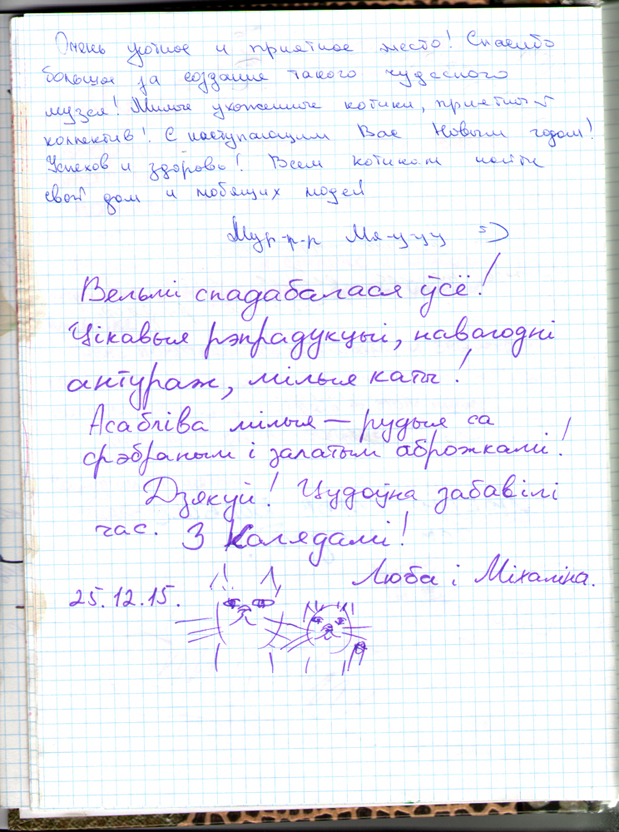 Очень уютное и приятное место! Спасибо
большое за создание такого чудесного
музея! Милые ухоженные котики, приятный
коллектив! С наступающим Вас Новым годом!
Успехов и здоровья! Всем котикам найти
свой дом и любящих людей
Мур-р-р Мя-у-у-у =)
Вельмі спадабалася ўсё!
Цікавыя рэпрадукцыі, навагодні
антураж, мілыя каты!
Асабліва мілыя — рудыя са
срэбраным і залатым аброжкамі!
Дзякуй! Цудоўна забавілі
час. З Калядамі!
Люба і Міхаліна.
25.12.15.